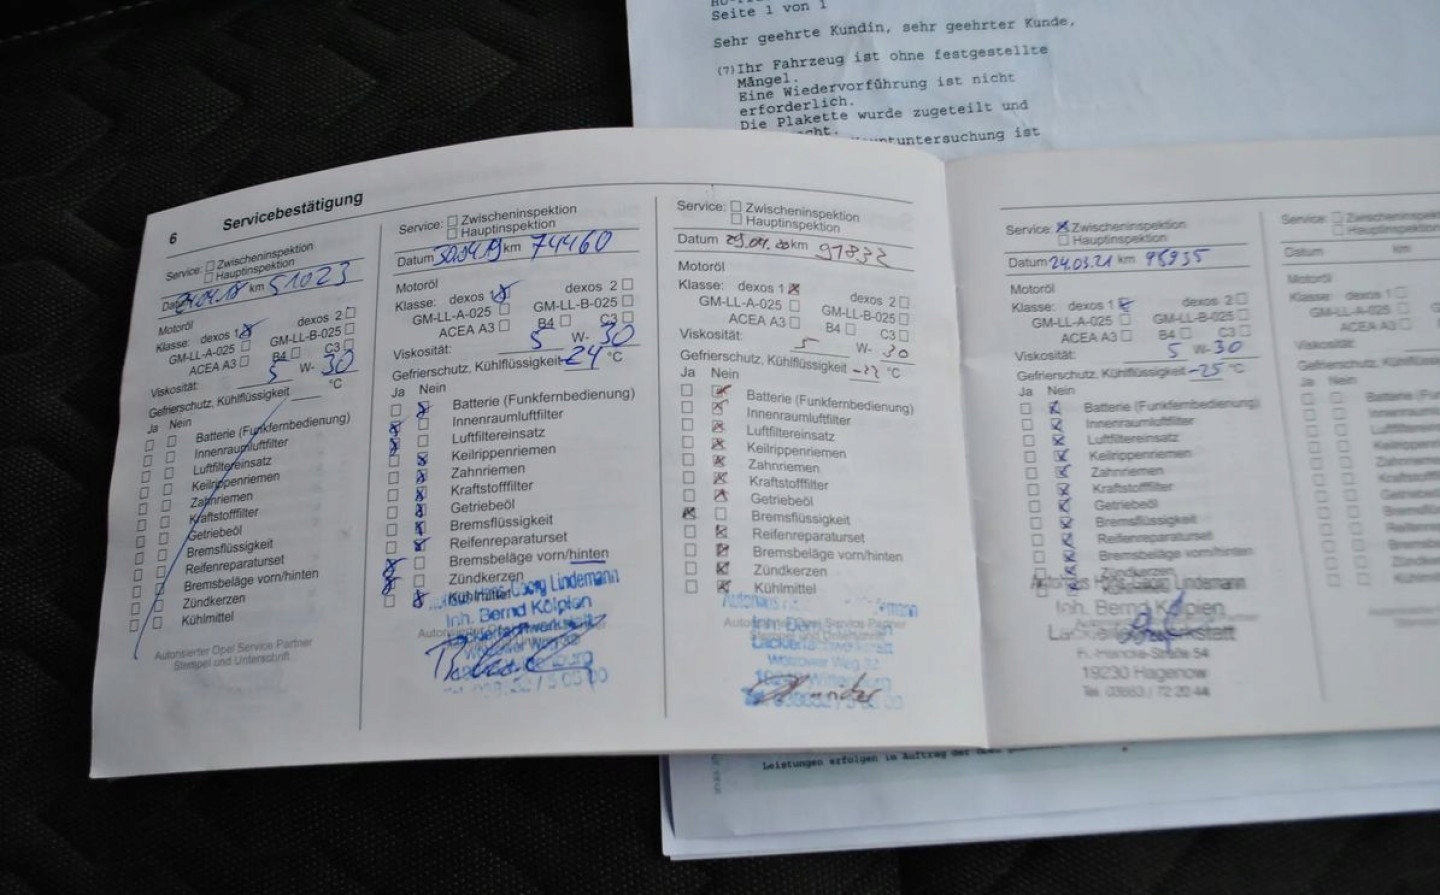 Seite 1 von 1
Sehr geehrte Kundin, sehr geehrter Kunde,
(7)Ihr Fahrzeug ist ohne festgestellte
Mängel.
Eine Wiedervorführung ist nicht
erforderlich.
Die Plakette wurde zugeteilt und
6 Servicebestätigung
Service: Zwischeninspektion
Hauptinspektion
Datum 24.04.18 km 51023
Motoröl
Klasse: dexos 1 dexos 2
GM-LL-A-025 GM-LL-B-025
ACEA A3 B4 C3
Viskosität: 5 W- 30
Gefrierschutz, Kühlflüssigkeit °C
Ja Nein
Batterie (Funkfernbedienung)
Innenraumluftfilter
Luftfiltereinsatz
Keilrippenriemen
Zahnriemen
Kraftstofffilter
Getriebeöl
Bremsflüssigkeit
Reifenreparaturset
Bremsbeläge vorn/hinten
Zündkerzen
Kühlmittel
Autorisierter Opel Service Partner
Stempel und Unterschrift
Service: Zwischeninspektion
Hauptinspektion
Datum 30.04.19 km 74460
Motoröl
Klasse: dexos 1 dexos 2
GM-LL-A-025 GM-LL-B-025
ACEA A3 B4 C3
Viskosität: 5 W- 30
Gefrierschutz, Kühlflüssigkeit -24 °C
Ja Nein
Batterie (Funkfernbedienung)
Innenraumluftfilter
Luftfiltereinsatz
Keilrippenriemen
Zahnriemen
Kraftstofffilter
Getriebeöl
Bremsflüssigkeit
Reifenreparaturset
Bremsbeläge vorn/hinten
Zündkerzen
Kühlmittel
Georg Lindemann
Inh. Bernd Kölpien
Lackierfachwerkstatt
Wölzower Weg 32
Service: Zwischeninspektion
Hauptinspektion
Datum 29.04.20 km 91832
Motoröl
Klasse: dexos 1 dexos 2
GM-LL-A-025 GM-LL-B-025
ACEA A3 B4 C3
Viskosität: 5 W- 30
Gefrierschutz, Kühlflüssigkeit -22 °C
Ja Nein
Batterie (Funkfernbedienung)
Innenraumluftfilter
Luftfiltereinsatz
Keilrippenriemen
Zahnriemen
Kraftstofffilter
Getriebeöl
Bremsflüssigkeit
Reifenreparaturset
Bremsbeläge vorn/hinten
Zündkerzen
Kühlmittel
Autohaus
Lackierfachwerkstatt
Wölzower Weg 32
Service: Zwischeninspektion
Hauptinspektion
Datum 24.03.21 km 98935
Motoröl
Klasse: dexos 1 dexos 2
GM-LL-A-025 GM-LL-B-025
ACEA A3 B4 C3
Viskosität: 5 W- 30
Gefrierschutz, Kühlflüssigkeit -25 °C
Ja Nein
Batterie (Funkfernbedienung)
Innenraumluftfilter
Luftfiltereinsatz
Keilrippenriemen
Zahnriemen
Kraftstofffilter
Getriebeöl
Bremsflüssigkeit
Reifenreparaturset
Bremsbeläge vorn/hinten
Zündkerzen
Autohaus Hans-Georg Lindemann
Inh. Bernd Kölpien
19230 Hagenow
Tel. 03883 / 72 20 44
Service:
Datum km
Motoröl
Klasse: dexos 1
GM-LL-A-025
ACEA A3
Viskosität:
Ja Nein
Leistungen erfolgen im Auftrag der